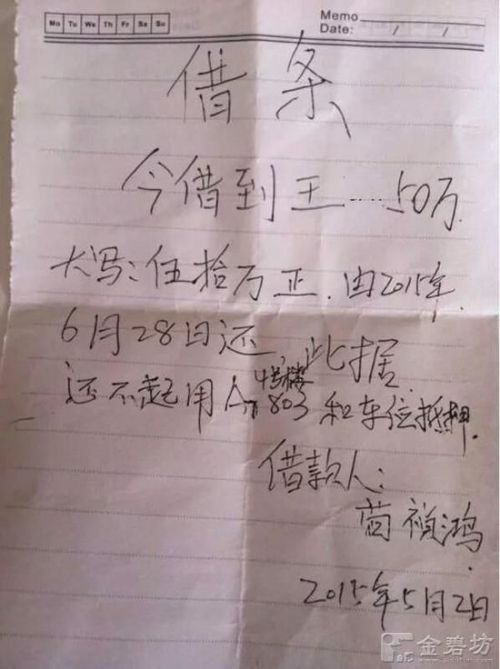 Mo Tu We Th Fr Sa Su
Memo
Date: / /
借条
今借到王……50万
大写:伍拾万正.由2015年.
6月28日还,此据
4号楼
还不起用A 803和车位抵押.
借款人:
鸿.
2015年5月2日
金碧坊